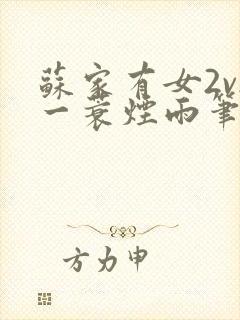 蘇家有女2v
一蓑煙雨筆
方力申